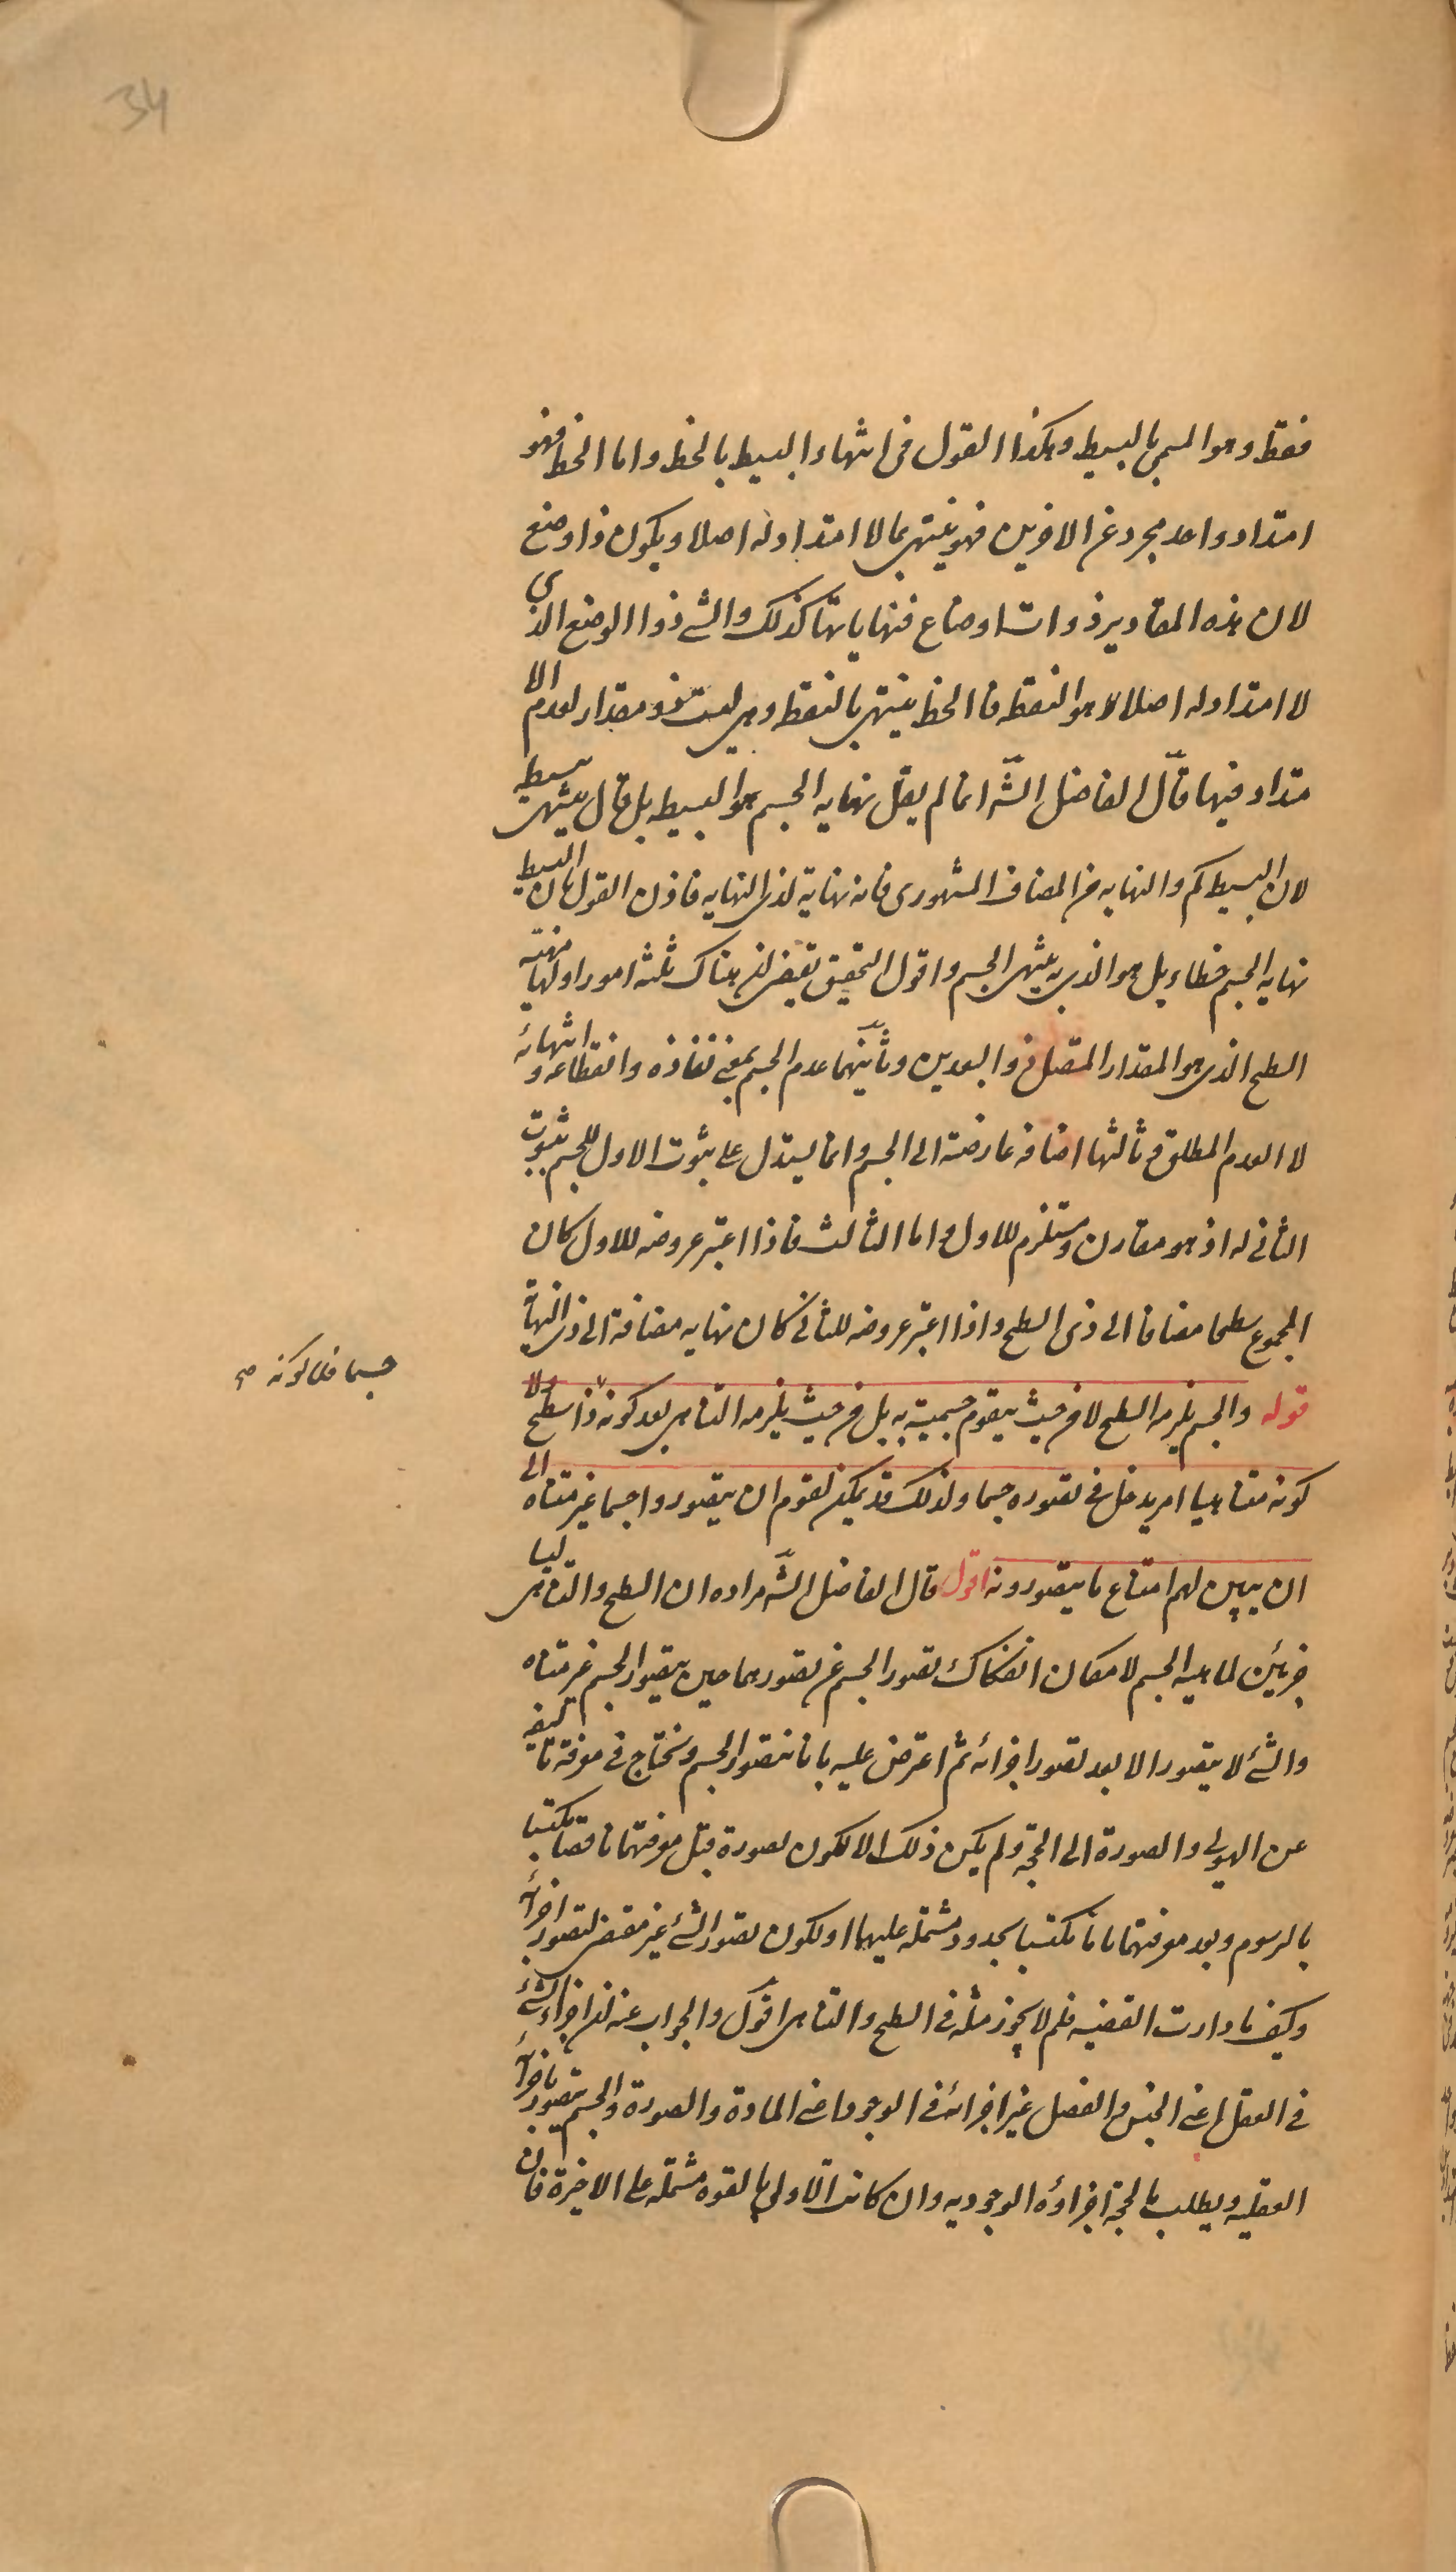 34
فقط وهو المسمى بالبسيط وهكذا القول فى انتهاء البسيط بالخط واما الخط فهو
امتداد واحد مجرد عن الاخرين فهو ينتهى بما لا امتداد له اصلا ويكون ذا وضع
لان هذه المقادير ذوات اوضاع فنهاياتها كذلك والشئ ذو الوضع الذى
لا امتداد له اصلا هو النقطه فالخط ينتهى بالنقطه وهى ليست ذو مقدار لعدم الا
متداد فيها قال الفاضل الشه انما لم يقل نهايه الجسم هو البسيط بل قال ينتهى ببسيط
لان البسيط كم والنهايه من المضاف المشهورى فانه نهاية لذى النهايه فاذن القول بان البسيط
نهايه الجسم خطاء بل هو الذى به ينتهى الجسم واقول التحقيق يقتضى ان هناك ثلثه امور اولها
السطح الذى هو المقدار المتصل ذو البعدين وثانيهما عدم الجسم بمعنى نفاذه وانقطاعه و انتهائه
لا العدم المطلق و ثالثها اضافه عارضة الى الجسم وانما يستدل على ثبوت الاول للجسم بثبوت
الثانى له اذ هو مقارن ومستلزم للاول واما الثالث فاذا اعتبر عروضه للاول كان
المجموع سطحا مضافا الى ذى السطح واذا اعتبر عروضه للثانى كان نهايه مضافة الى ذى النهاية
قوله والجسم يلزمه السطح لا من حيث يتقوم جسميته به بل من حيث يلزمه التناهى بعد كونه ذا سطح ولا
جسما فلا كونه صح
كونه متناهيا امر يدخل فى تصوره جسما ولذلك قد يمكن لقوم ان يتصوروا جسما غير متناه الى
ان يبين لهم امتناع ما يتصورونه اقول قال الفاضل الشه مراده ان السطح والتناهى ليسا
جزئين لماهيه الجسم لامكان انفكاك تصور الجسم عن تصورهما حين يتصور الجسم غير متناه
والشئ لا يتصور الا بعد تصور اجزائه ثم اعترض عليه بانا نتصور الجسم ونحتاج فى معرفة تاليفه
عن الهيولى والصورة الى الحجة ولم يكن ذلك الا لكون تصوره قبل معرفتهما ناقصا مكتسبا
بالرسوم وبعد معرفتهما تاما مكتسبا بحدود مشتمله عليهما او لكون تصور الشئ غير مقتض لتصور اجزائه
وكيف ما دارت القضيه فلم لا يجوز مثله فى السطح والتناهى اقول والجواب عنه ان اجزاء الشئ
فى العقل اعنى الجنس والفصل غير اجزائه فى الوجود اعنى المادة والصورة والجسم يتصور باجزائه
العقليه ويطلب بالحجة اجزاؤه الوجوديه وان كانت الاولى بالقوه مشتمله على الاخيرة فان